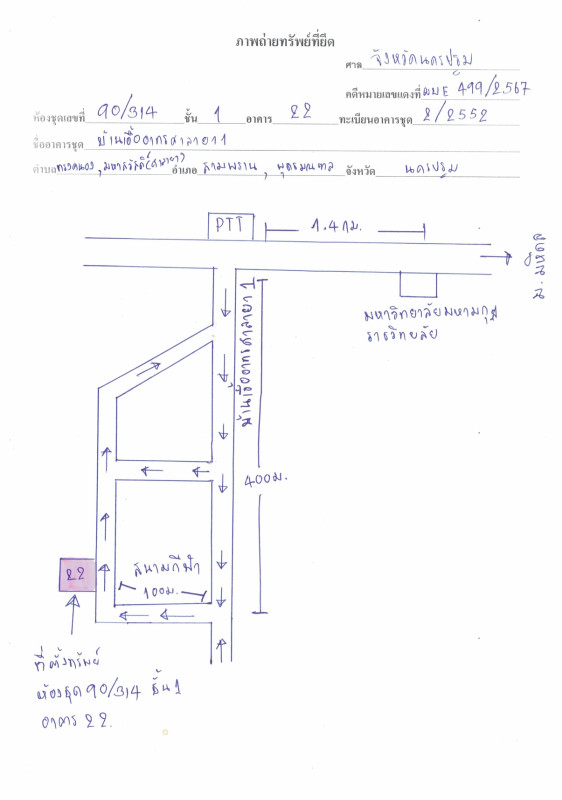 ภาพถ่ายทรัพย์ที่ยึด
ศาล จังหวัดนครปฐม
คดีหมายเลขแดงที่ ผบE 499/2567
ห้องชุดเลขที่ 90/314 ชั้น 1 อาคาร 22 ทะเบียนอาคารชุด 2/2552
ชื่ออาคารชุด บ้านเอื้ออาทรศาลายา1
ตำบล ทรงคนอง, มหาสวัสดิ์(ศาลายา) อำเภอ สามพราน, พุทธมณฑล จังหวัด นครปฐม
PTT
1.4 กม.
มหาวิทยาลัยมหามกุฏ
ราชวิทยาลัย
บ้านเอื้ออาทรศาลายา 1
400ม.
สนามกีฬา
100ม.
22
ที่ตั้งทรัพย์
ห้องชุด 90/314 ชั้น 1
อาคาร 22.